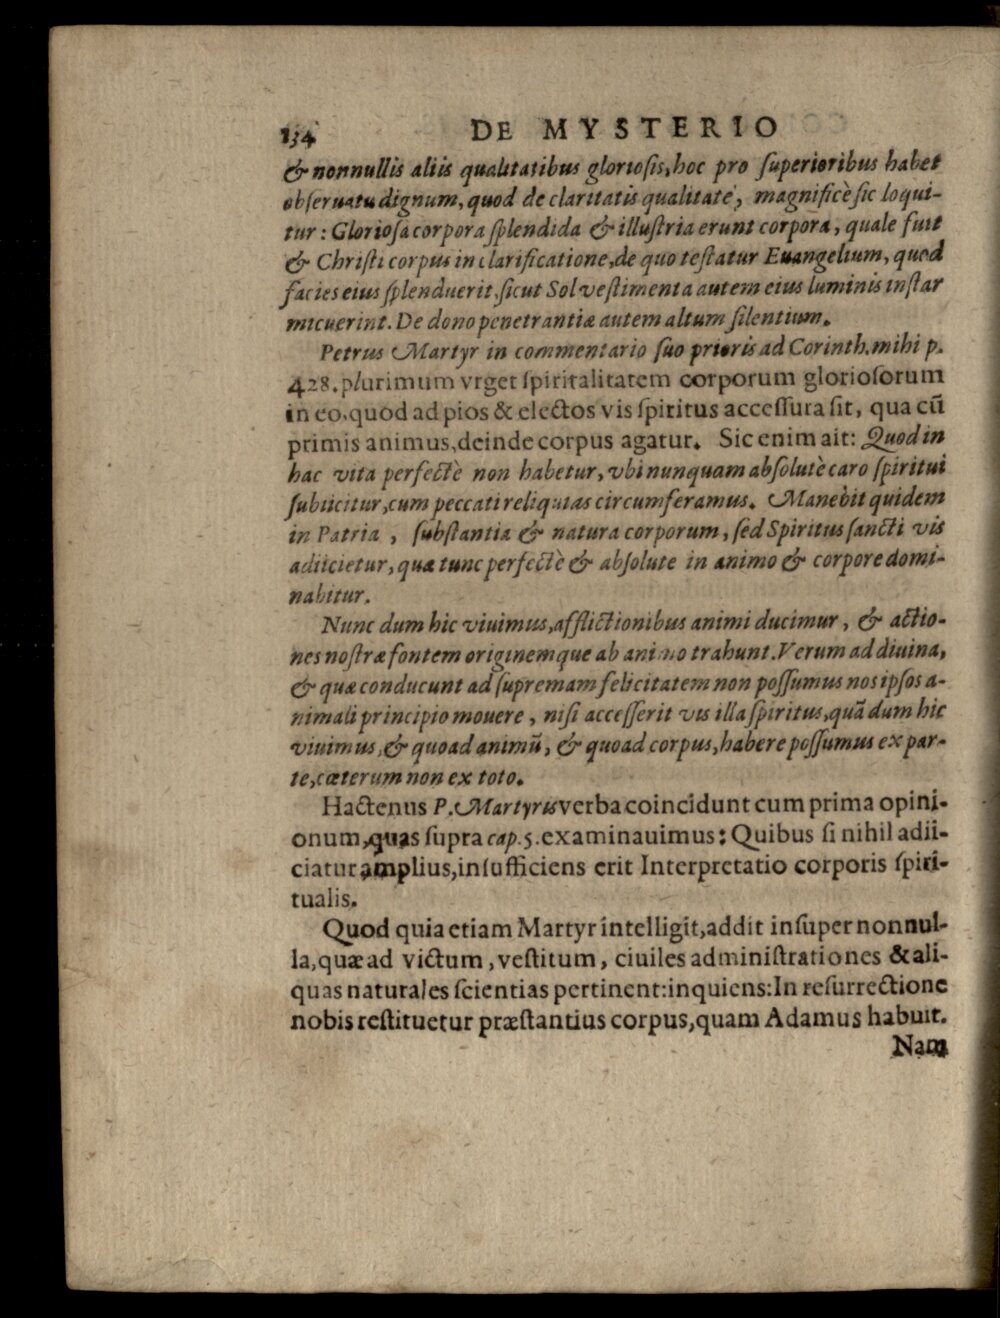 134 DE MYSTERIO
& nonnullis aliis qualitatibus gloriosis, hoc pro superioribus habet
obseruatu dignum, quod de claritatis qualitate, magnificè sic loqui-
tur: Gloriosa corpora splendida & illustria erunt corpora, quale fuit
& Christi corpus in clarificatione, de quo testatur Euangelium, quod
facies eius splenduerit, sicut Sol vestimenta autem eius luminis instar
micuerint. De dono penetrantiæ autem altum silentium.
Petrus Martyr in commentario suo prioris ad Corinth. mihi p.
428. plurimum vrget spiritalitatem corporum gloriosorum
in eo, quod ad pios & electos vis spiritus accessura sit, qua cū
primis animus, deinde corpus agatur. Sic enim ait: Quod in
hac vita perfectè non habetur, vbi nunquam absolutè caro spiritui
subiicitur, cum peccati reliquias circumferamus. Manebit quidem
in Patria , substantia & natura corporum, sed Spiritus sancti vis
adiicietur, quæ tunc perfectè & absolute in animo & corpore domi-
nabitur.
Nunc dum hic viuimus, afflictionibus animi ducimur, & actio-
nes nostræ fontem originemque ab animo trahunt. Verum ad diuina,
& quæ conducunt ad supremam felicitatem non possumus nos ipsos a-
nimali principio mouere, nisi accesserit vis illa spiritus, quā dum hic
viuimus, & quoad animū, & quoad corpus, habere possumus ex par-
te, cæterum non ex toto.
Hactenus P. Martyris verba coincidunt cum prima opini-
onum, quas supra cap. 5. examinauimus: Quibus si nihil adii-
ciatur amplius, insufficiens erit Interpretatio corporis spiri-
tualis.
Quod quia etiam Martyr intelligit, addit insuper nonnul-
la, quæ ad victum, vestitum, ciuiles administrationes & ali-
quas naturales scientias pertinent: inquiens: In resurrectione
nobis restituetur præstantius corpus, quam Adamus habuit.
Nam